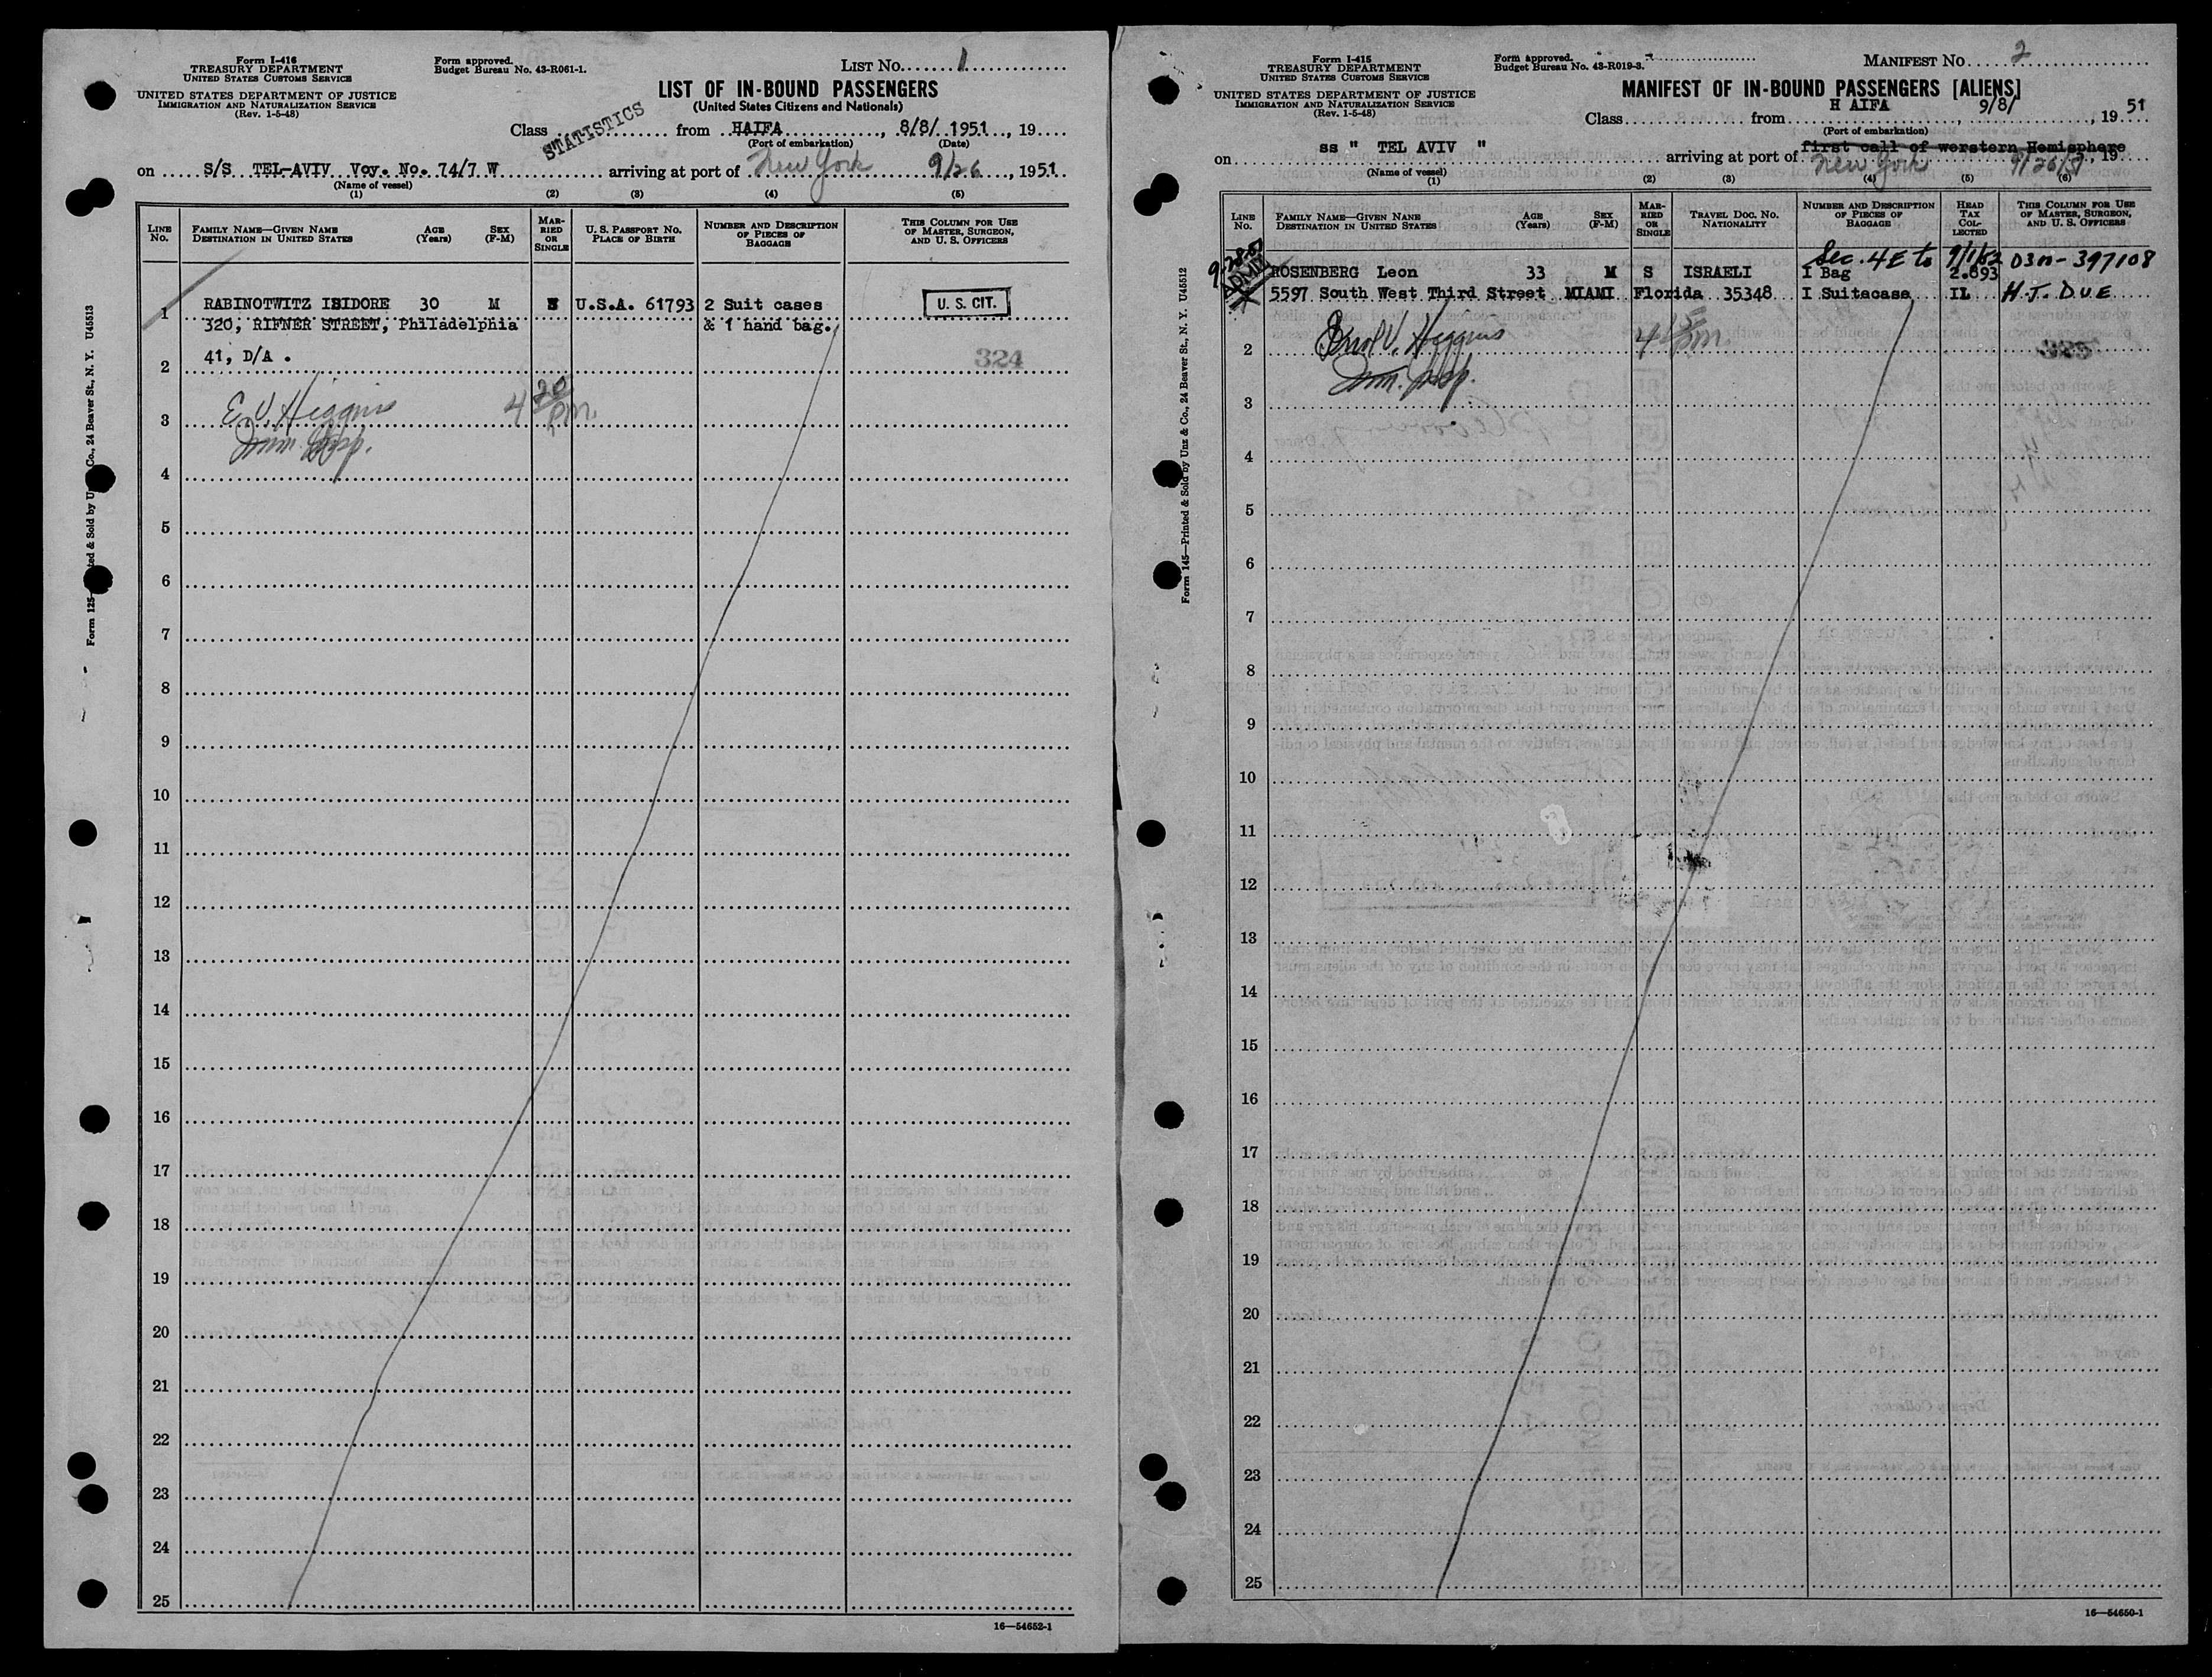 Form I-416
TREASURY DEPARTMENT
UNITED STATES CUSTOMS SERVICE
UNITED STATES DEPARTMENT OF JUSTICE
IMMIGRATION AND NATURALIZATION SERVICE
(Rev. 1-5-48)
Form approved.
Budget Bureau No. 43-R061-1.
LIST No. 1
LIST OF IN-BOUND PASSENGERS
(United States Citizens and Nationals)
STATISTICS
Class from HAIFA, 8/8/ 1951, 19
(Port of embarkation) (Date)
on S/S TEL-AVIV Voy. No. 74/7 W arriving at port of New York 9/26, 1951
(Name of vessel)
(1) (2) (3) (4) (5)
LINE No.
FAMILY NAME—GIVEN NAME
DESTINATION IN UNITED STATES
AGE (Years)
SEX (F-M)
MARRIED OR SINGLE
U. S. PASSPORT NO.
PLACE OF BIRTH
NUMBER AND DESCRIPTION OF PIECES OF BAGGAGE
THIS COLUMN FOR USE OF MASTER, SURGEON, AND U. S. OFFICERS
1 RABINOTWITZ ISIDORE 30 M U.S.A. 61793 2 Suit cases U. S. CIT.
320, RIFNER STREET, Philadelphia & 1 hand bag.
2 41, D/A . 324
3 E. V. Higgins 4 20 pm.
Imm. Insp.
4
5
6
7
8
9
10
11
12
13
14
15
16
17
18
19
20
21
22
23
24
25
16—54652-1
U45513
Form I-415
TREASURY DEPARTMENT
UNITED STATES CUSTOMS SERVICE
UNITED STATES DEPARTMENT OF JUSTICE
IMMIGRATION AND NATURALIZATION SERVICE
(Rev. 1-5-48)
Form approved.
Budget Bureau No. 43-R019-3.
MANIFEST No. 2
MANIFEST OF IN-BOUND PASSENGERS [ALIENS]
Class from H AIFA, 9/8/, 19 51
(Port of embarkation)
on ss " TEL AVIV " arriving at port of first call of werstern Hemisphere, 19
New York 9/26/51
(Name of vessel)
(1) (2) (3) (4) (5) (6)
LINE No.
FAMILY NAME—GIVEN NAME
DESTINATION IN UNITED STATES
AGE (Years)
SEX (F-M)
MARRIED OR SINGLE
TRAVEL DOC. NO.
NATIONALITY
NUMBER AND DESCRIPTION OF PIECES OF BAGGAGE
HEAD TAX COLLECTED
THIS COLUMN FOR USE OF MASTER, SURGEON, AND U. S. OFFICERS
Sec. 4E to 9/1/52 D3N-397108
ROSENBERG Leon 33 M S ISRAELI I Bag 2.893
5597 South West Third Street MIAMI Florida 35348 I Suitacase IL H.J. DUE
2 V. Higgins
Imm. Insp.
3
4
5
6
7
8
9
10
11
12
13
14
15
16
17
18
19
20
21
22
23
24
25
16—54650-1
Form 145—Printed & Sold by Unz & Co., 24 Beaver St., N. Y. U45512